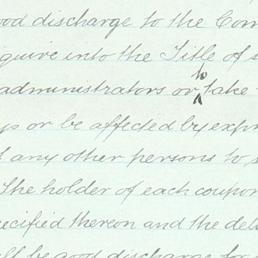 good discharge to the Com
nquire into the Title of s
administrators or to take
us or be affected by expr
f any other persons to s
The holder of each coupon
pecified thereon and the del
ll be good discharge for